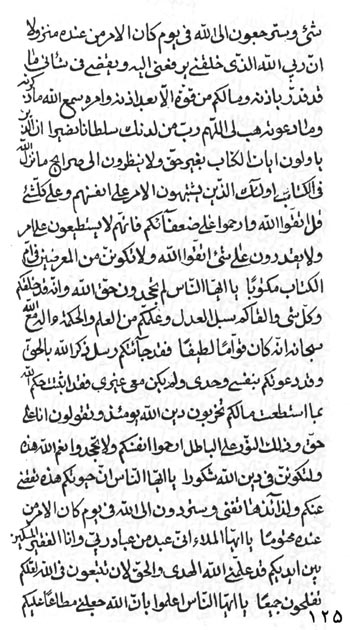 شئ وسترجعون الى الله فى يوم كان الامر من عنده منزولا
ان ربي الله الذى خلقنى يرفعنى اليه ويقضى فى شانى ما
قد قدر باذنه ومالكم من قوة الا بعد اذنه وامره سمع الله ما
وما دعوته هب لى اللهم رب من لدنك سلطانا نصيرا ان الذين
ياولون ايات الكتاب بغير حق ولا ينظرون الى صراط ما نزل الله
فى الكتاب اولئك الذين يشتبهون الامر على انفسهم وعلى كلشئ
قل اتقوا الله وارحموا على ضعفائكم فانهم لا يستطيعون على امر
ولا يقدرون على شئ اتقوا الله ولا تكونن من المعرضين فى ام
الكتاب مكتوبا يا ايها الناس لم تجحدون حق الله وانه قد خلقكم
وكل شئ والقاكم سبل العدل وعلمكم من العلم والحكمة والله
سبحانه انه كان قواما لطيفا فقد جائتكم رسل ذكر الله بالحق
وقد دعوتكم بنفسى وحدى ولم يكن معى غيرى فقد
بما استطعت مالكم تخربون دين الله يومئذ وتقولون انا على
حق وذلك الزور على الباطل ارحموا انفسكم ولا تجحدوا نعم الله هذه
ولتكونن فى دين الله شكورا يا ايها الناس ان حيوتكم هذه تقضى
عنكم ولذائذها تفنى وستردون الى الله فى يوم كان الامر من
عنده محتوما يا ايها الملاء انى عبد من عباد ربي وانا الفقير المسكين
بين ايديكم قد علمنى الله الهدى والحق لان تتبعون فى الله لعلكم
تفلحون جميعا يا ايها الناس اعلموا بان الله جعلنى مطاعا عليكم
١٢٥